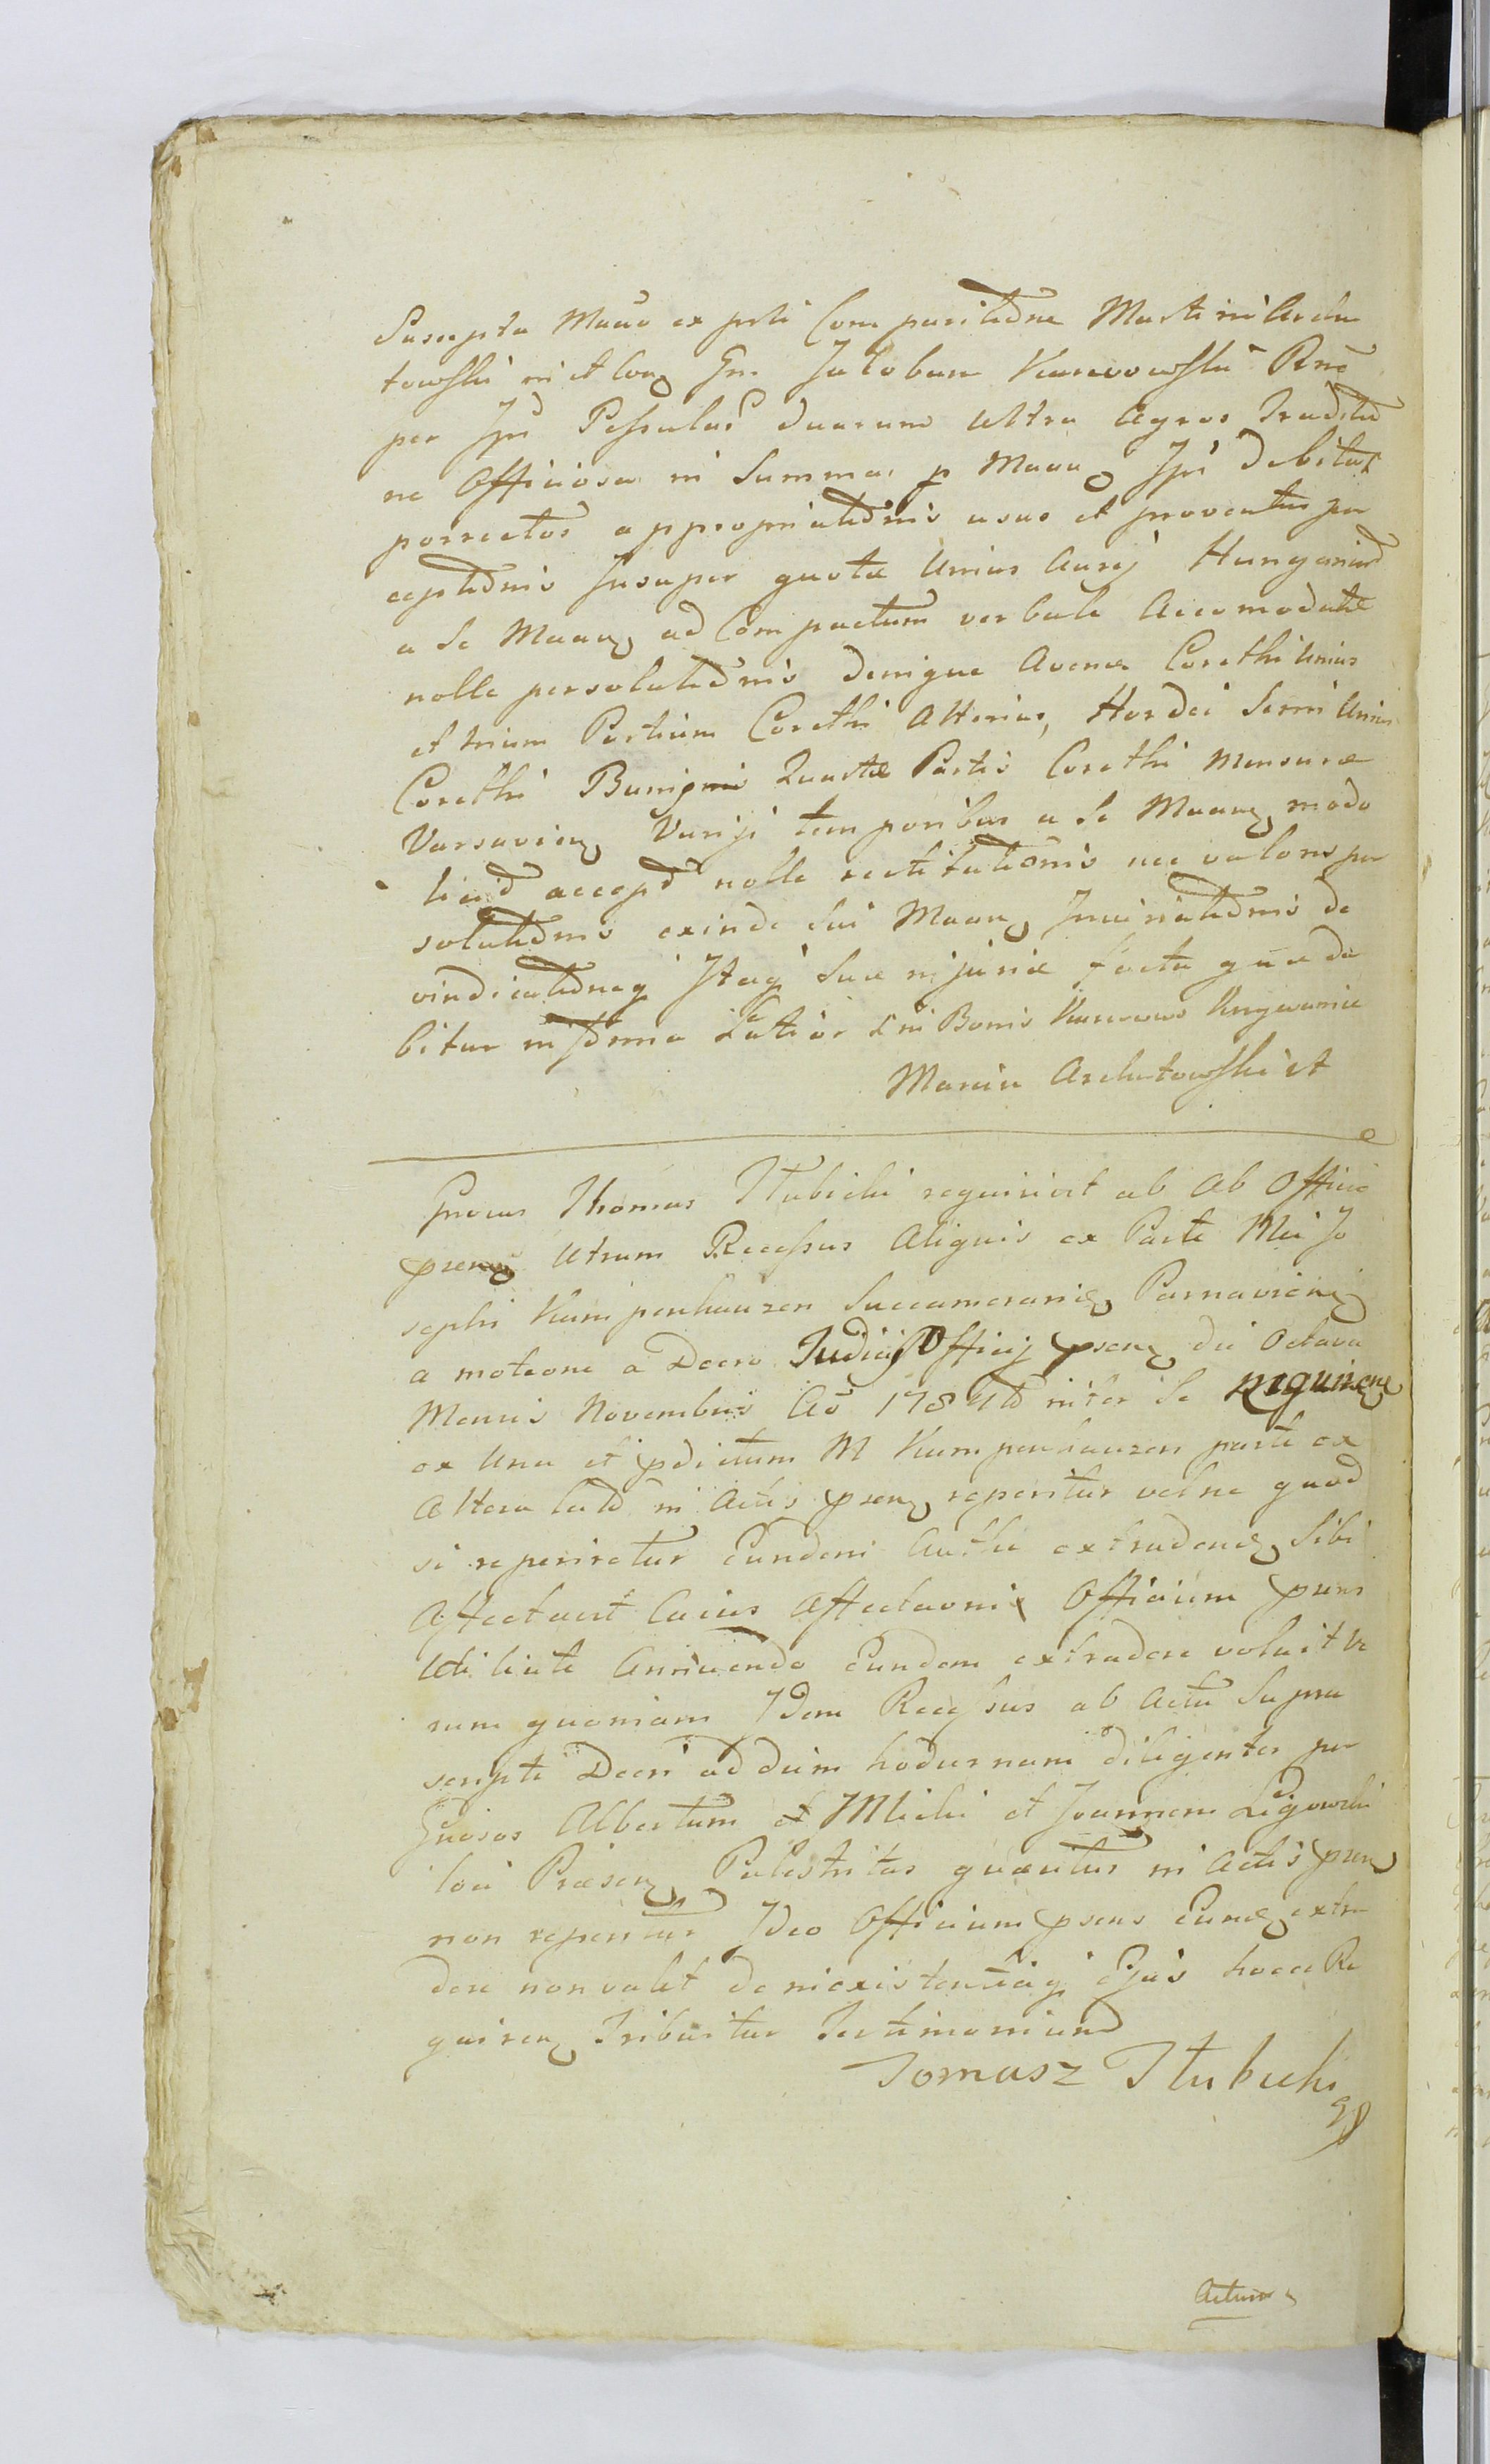 Suscepta Manu ex prti Comparitdne Martini Archu
towski in et con Gm Jakobum Karwowski Rnē
per Jpī Pessulus duarum ultra Agros Tradita
ne Officiosa in Summa p Manu Jpī debitas
porrectos appropriatdnis usus et proventus per
ceptdnis Insuper quotæ Unius Aurej Hungarical
a Se Manu ad Compactum verbale Accomodatæ
nolle persolutdnis denique Avenæ Corethi Unius
et trium Partium Corethi Alterius, Hordei Semi Unius
Corethi Quartæ Partis Corethi Mensuræ
Varsavien Varijs temporibus a Se Manu modo
accept nolle restitutionis nec valoris per
solutdnis exinde Sui Manu de
vindicatdneq Itaq Suæ injuriæ facta quæ da
bitur in forma Latior in Bonis Karwowo
Marcin Archutowski
Gnosus Thomas Tłubicki requisivit ab Ab Officio
psen Utrum Recessus Aliquis ex Parte Mci Jo
sephi Kampenhauzen Succamerarij Parnavien
a motione a Decro Judicij Officij psen die Octava
Mensis Novembris Aō 1784to inter Se requiren
ex Una et pdictum M Kampenhauzen parte ex
Altera lato in Actis psen reperitur vel ne quod
si reperiretur Eundem Authe extradend Sibi
Affectavit Cuius Affectaōni Officium psens
Annuendo Eundem extradere voluit Ve
rum quoniam Idem Recessus ab Actu Supra
scripti Decri ad diem hodiernam diligenter per
Gnosos Albertum et Joannem Ligowski
loci Præsen Palestritas quæsitus in Actis psen
non reperitur Ideo Officium psens Eund extra
dere non valet de niexistentiaq Ejus hocce Re
quiren Tribuitur Testimonium
Tomasz Tłubicki
Actum